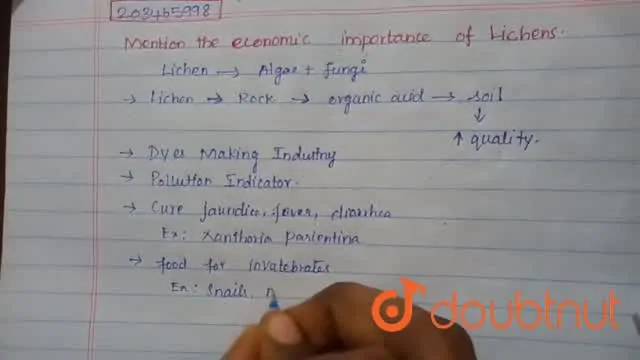 203465998
Mention the economic importance of Lichens.
Lichen → Algae + fungi
→ Lichen → Rock → organic acid → soil
↓
↑ quality.
→ Dyes Making Industry
→ Pollution Indicator.
→ Cure Jaundice, fever, diarrhea
Ex: Xanthoria parientina
→ food for invatebrates
Ex: Snails,
doubtnut